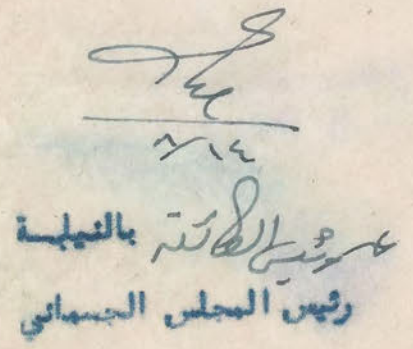 ٨/١٤
رئيس الطائفة بالنيابة
رئيس المجلس الجسماني